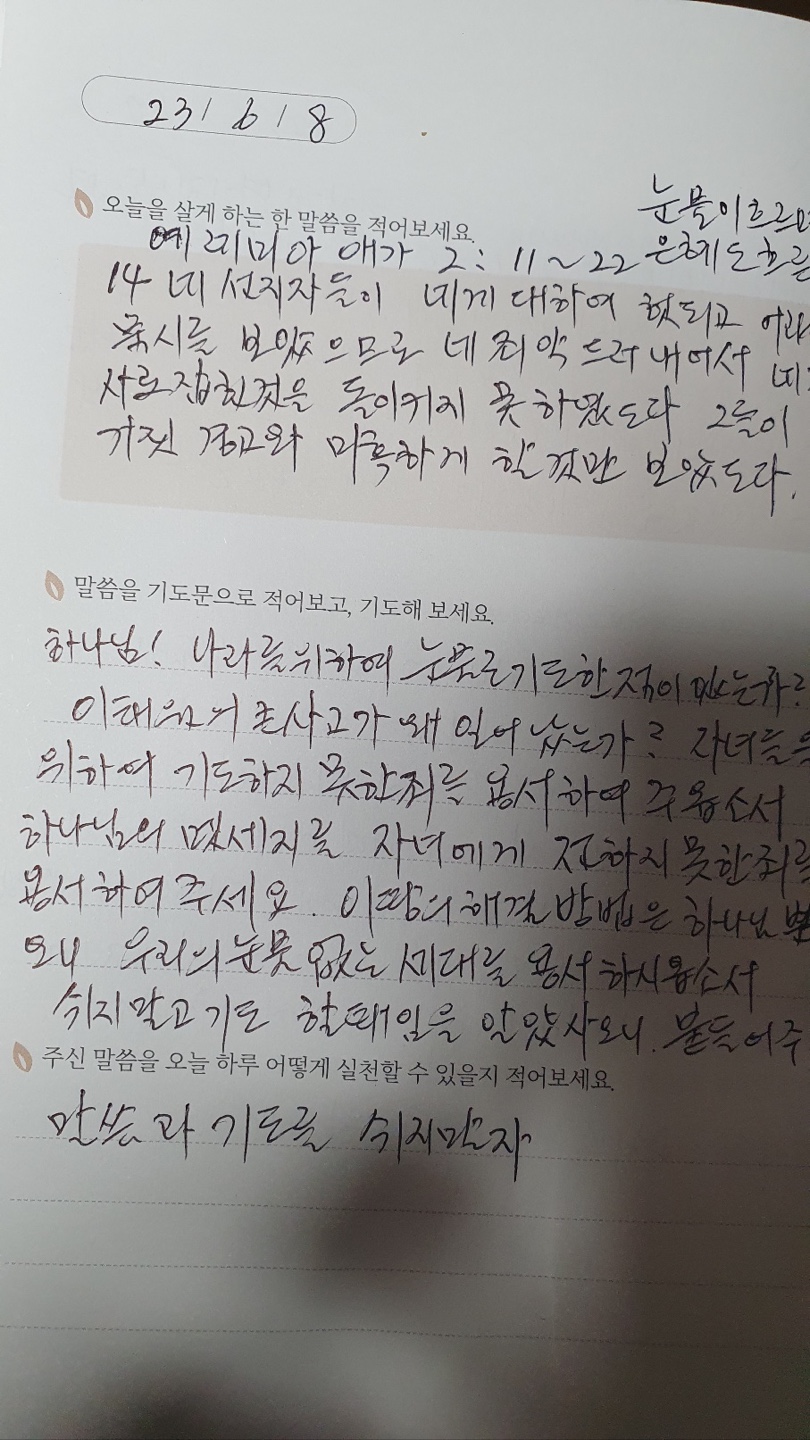 23 / 6 / 8
눈물이 흐르
오늘을 살게 하는 한 말씀을 적어보세요.
예레미야 애가 2: 11~22 은혜도 흐른
14 네 선지자들이 네게 대하여 헛되고 어리
묵시를 보았으므로 네 죄악 드러내어서 네
사로잡힌것을 돌이키지 못하였도다 그들이
거짓 경고와 미혹하게 할 것만 보았도다.
말씀을 기도문으로 적어보고, 기도해 보세요.
하나님! 나라를위하여 눈물로기도한적이 있는가?
이태원의 큰사고가 왜 일어 났는가? 자녀들을
위하여 기도하지 못한죄를 용서하여 주옵소서
하나님의 멧세지를 자녀에게 전하지못한죄를
용서하여 주세요. 이땅의 해결 방법은 하나님 뿐
오니 우리의 눈못 없는 세대를 용서하시옵소서
쉬지말고 기도 할때임을 알았사오니. 붙들어주
주신 말씀을 오늘 하루 어떻게 실천할 수 있을지 적어보세요.
말씀과 기도를 쉬지말자